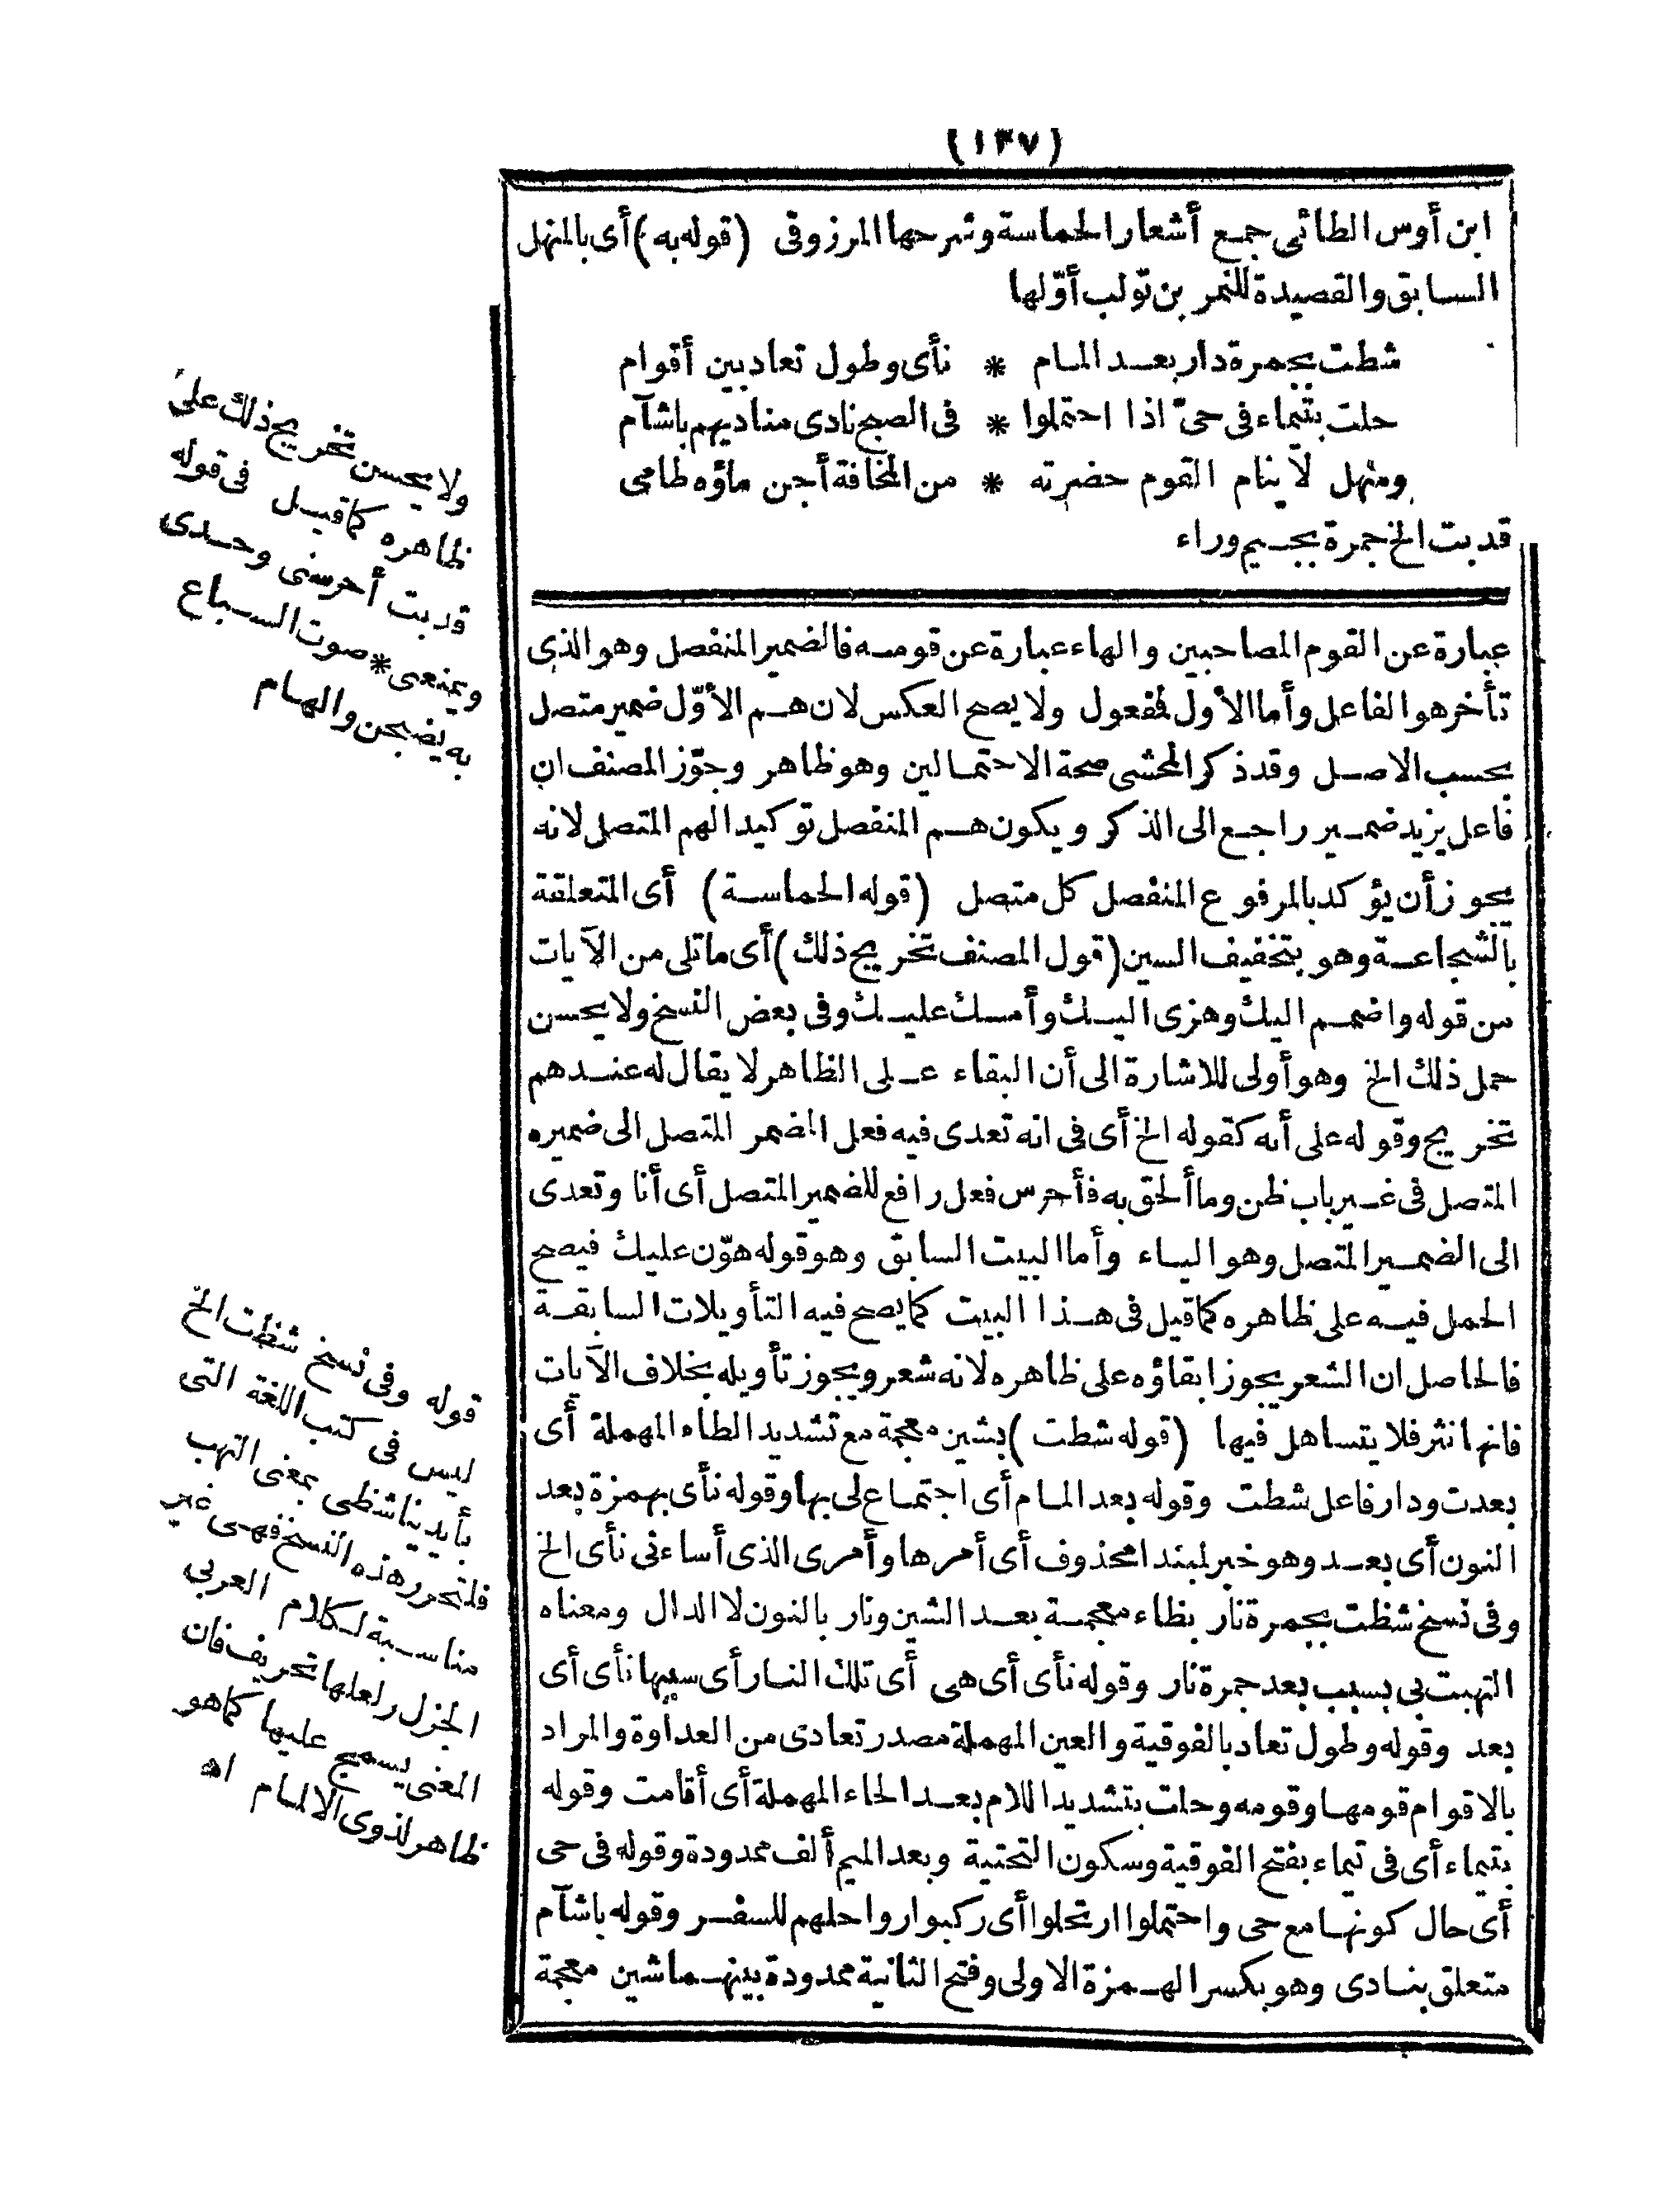 (١٣٧)
ابن أوس الطائى جمع أشعار الحماسة وشرحها المرزوقى (قوله به) أى بالمنهل
السابق والقصيدة للنمر بن تولب أوّلها
شطت بجمرة دار بعد المام * نأى وطول تعاد بين أقوام
حلت بتيماء فى حىّ اذا احتملوا * فى الصبح نادى مناديهم باشآم
ومنهل لا ينام القوم حضرته * من المخافة أجن ماؤه طامى
قد بت الخ جمرة بجيم وراء
ولا يحسن تخريج ذلك على
ظاهره كما قيل فى قوله
قد بت أحرسنى وحدى
ويمنعنى * صوت السباع
به يضبحن والهام
عبارة عن القوم المصاحبين والهاء عبارة عن قومه فالضمير المنفصل وهو الذى
تأخر هو الفاعل وأما الأول فمفعول ولا يصح العكس لان هم الأوّل ضمير متصل
بحسب الاصل وقد ذكر المحشى صحة الاحتمالين وهو ظاهر وجوّز المصنف ان
فاعل يزيد ضمير راجع الى الذكر ويكون هم المنفصل توكيدا لهم المتصل لانه
يجوز أن يؤكد بالمرفوع المنفصل كل متصل (قوله الحماسة) أى المتعلقة
بالشجاعة وهو بتخفيف السين (قول المصنف تخريج ذلك) أى ما تلى من الآيات
من قوله واضمم اليك وهزى اليك وأمسك عليك وفى بعض النسخ ولا يحسن
حمل ذلك الخ وهو أولى للاشارة الى أن البقاء على الظاهر لا يقال له عندهم
تخريج وقوله على أنه كقوله الخ أى فى انه تعدى فيه فعل المضمر المتصل الى ضميره
المتصل فى غير باب ظن وما ألحق به فأحرس فعل رافع للضمير المتصل أى أنا وتعدى
الى الضمير المتصل وهو الياء وأما البيت السابق وهو قوله هوّن عليك فيصح
الحمل فيه على ظاهره كما قيل فى هذا البيت كما يصح فيه التأويلات السابقة
فالحاصل ان الشعر يجوز ابقاؤه على ظاهره لانه شعر ويجوز تأويله بخلاف الآيات
فانها نثر فلا يتساهل فيها (قوله شطت) بشين معجمة مع تشديد الطاء المهملة أى
بعدت ودار فاعل شطت وقوله بعد المام أى اجتماع لى بها وقوله نأى بهمزة بعد
النون أى بعد وهو خبر لمبتدا محذوف أى أمرها وأمرى الذى أساءنى نأى الخ
وفى نسخ شظت بجمرة نار بظاء معجمة بعد الشين ونار بالنون لا الدال ومعناه
التهبت بى بسبب بعد جمرة نار وقوله نأى أى هى أى تلك النار أى سببها نأى أى
بعد وقوله وطول تعاد بالفوقية والعين المهملة مصدر تعادى من العداوة والمراد
بالاقوام قومها وقومه وحلت بتشديد اللام بعد الحاء المهملة أى أقامت وقوله
بتيماء أى فى تيماء بفتح الفوقية وسكون التحتية وبعد الميم ألف ممدودة وقوله فى حى
أى حال كونها مع حى واحتملوا ارتحلوا أى ركبوا رواحلهم للسفر وقوله باشآم
متعلق بنادى وهو بكسر الهمزة الاولى وفتح الثانية ممدودة بينهما شين معجمة
قوله وفى نسخ شظت الخ
ليس فى كتب اللغة التى
بأيدينا شظى بمعنى التهب
فلتحرر هذه النسخ فهى غير
مناسبة لكلام العربى
الجزل ولعلها تحريف فان
المعنى يسمج عليها كما هو
ظاهر لذوى الالمام اه